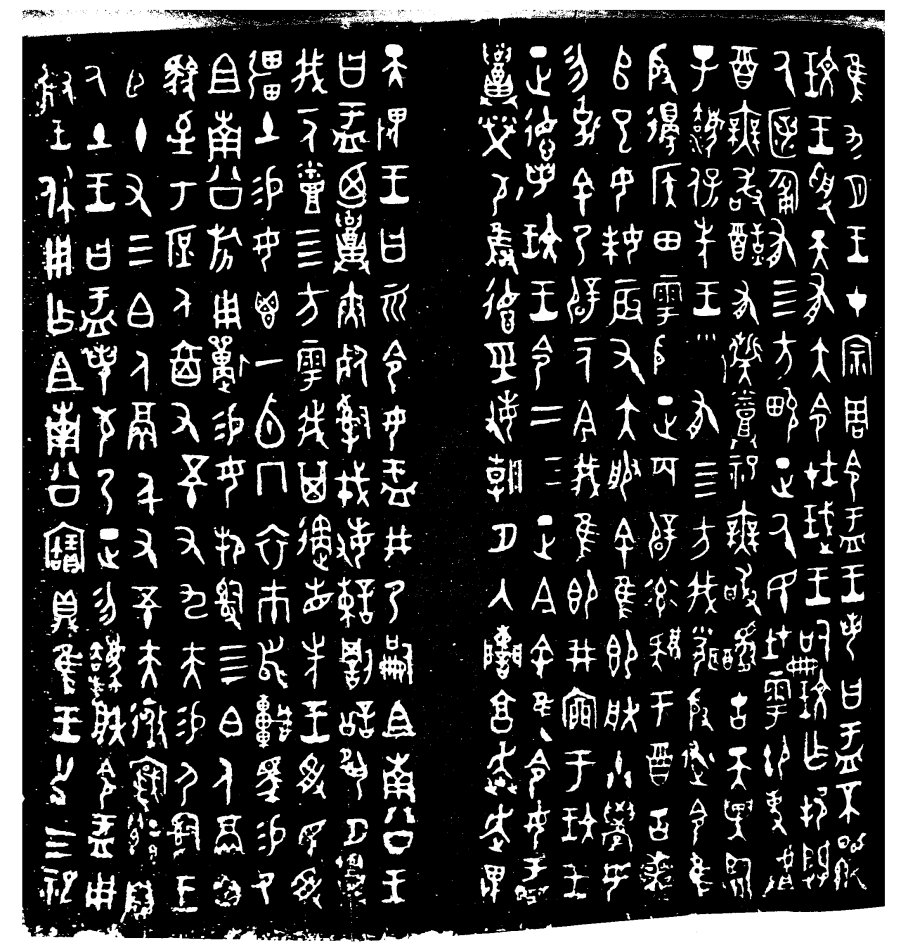 隹九月王才宗周令盂王若曰盂不顯
玟王受天有大令在珷王嗣玟乍邦闢
氒匿匍有四方畯正氒民在雩御事𠭯
酉無敢酖有祡蒸祀無敢𨢩古天異臨
子灋保先王有四方我聞殷述令隹
殷邊侯田雩殷正百辟率肄于酉古喪
𠂤已女妹辰又大服余隹即朕小學女
勿余乃辟一人今我隹即井㐭于玟王
正德若玟王令二三正今余隹令女盂
召榮敬雍德巠敏朝夕入讕享奔走畏
天畏王曰令女盂井乃嗣且南公王
曰盂乃召夾死𤔲戎敏諫罰訟夙夕召
我一人烝四方雩我其遹省先王受民受
疆土易女鬯一卣冂衣巿舄車馬易乃
且南公旂用狩易女邦𤔲四白人鬲自
馭至于庶人六百又五十又九夫易尸𤔲王
臣十又三白人鬲千又五十夫遷自
氒土王曰盂若敬乃正勿灋朕令盂用
對王休用乍且南公寶鼎隹王廿又三祀